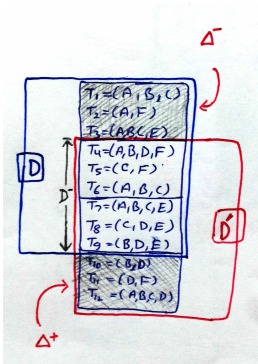 Δ⁻
T₁=(A,B,C)
T₂=(A,F)
T₃=(ABC,E)
T₄=(A,B,D,F)
T₅=(C,F)
D
D⁻
T₆=(A,B,C)
T₇=(A,B,C,E)
T₈=(C,D,E)
D′
T₉=(B,D,E)
T₁₀=(B,D)
T₁₁=(D,F)
T₁₂=(A,B,C,D)
Δ⁺